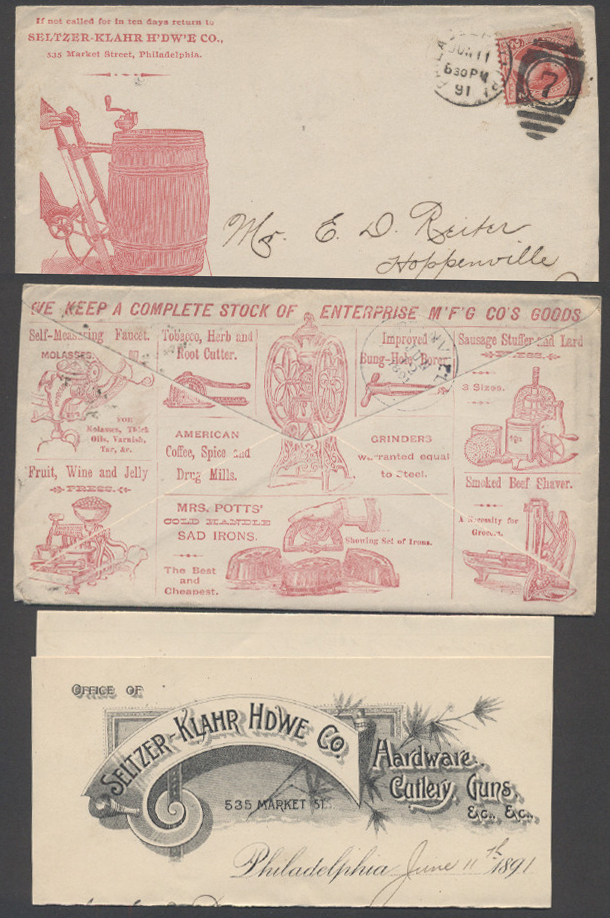 If not called for in ten days return to
SELTZER-KLAHR H'DW'E CO.,
535 Market Street, Philadelphia.
JUN 11
630 PM
91
7
Mr. E. D. Reiter
Hoppenville
WE KEEP A COMPLETE STOCK OF ENTERPRISE M'F'G CO'S GOODS
Self-Measuring Faucet.
MOLASSES.
FOR
Molasses, Thick
Oils, Varnish,
Tar, &c.
Tobacco, Herb and
Root Cutter.
Improved
Bung-Hole Borer.
Sausage Stuffer and Lard
PRESS.
3 Sizes.
AMERICAN
Coffee, Spice and
Drug Mills.
GRINDERS
warranted equal
to Steel.
Fruit, Wine and Jelly
PRESS.
MRS. POTTS'
COLD HANDLE
SAD IRONS.
The Best
and
Cheapest.
Showing Set of Irons.
Smoked Beef Shaver.
A Necessity for
Grocers.
OFFICE OF
SELTZER-KLAHR HDWE CO.
535 MARKET ST.
Hardware,
Cutlery, Guns,
&C., &C.
Philadelphia June 11th 1891